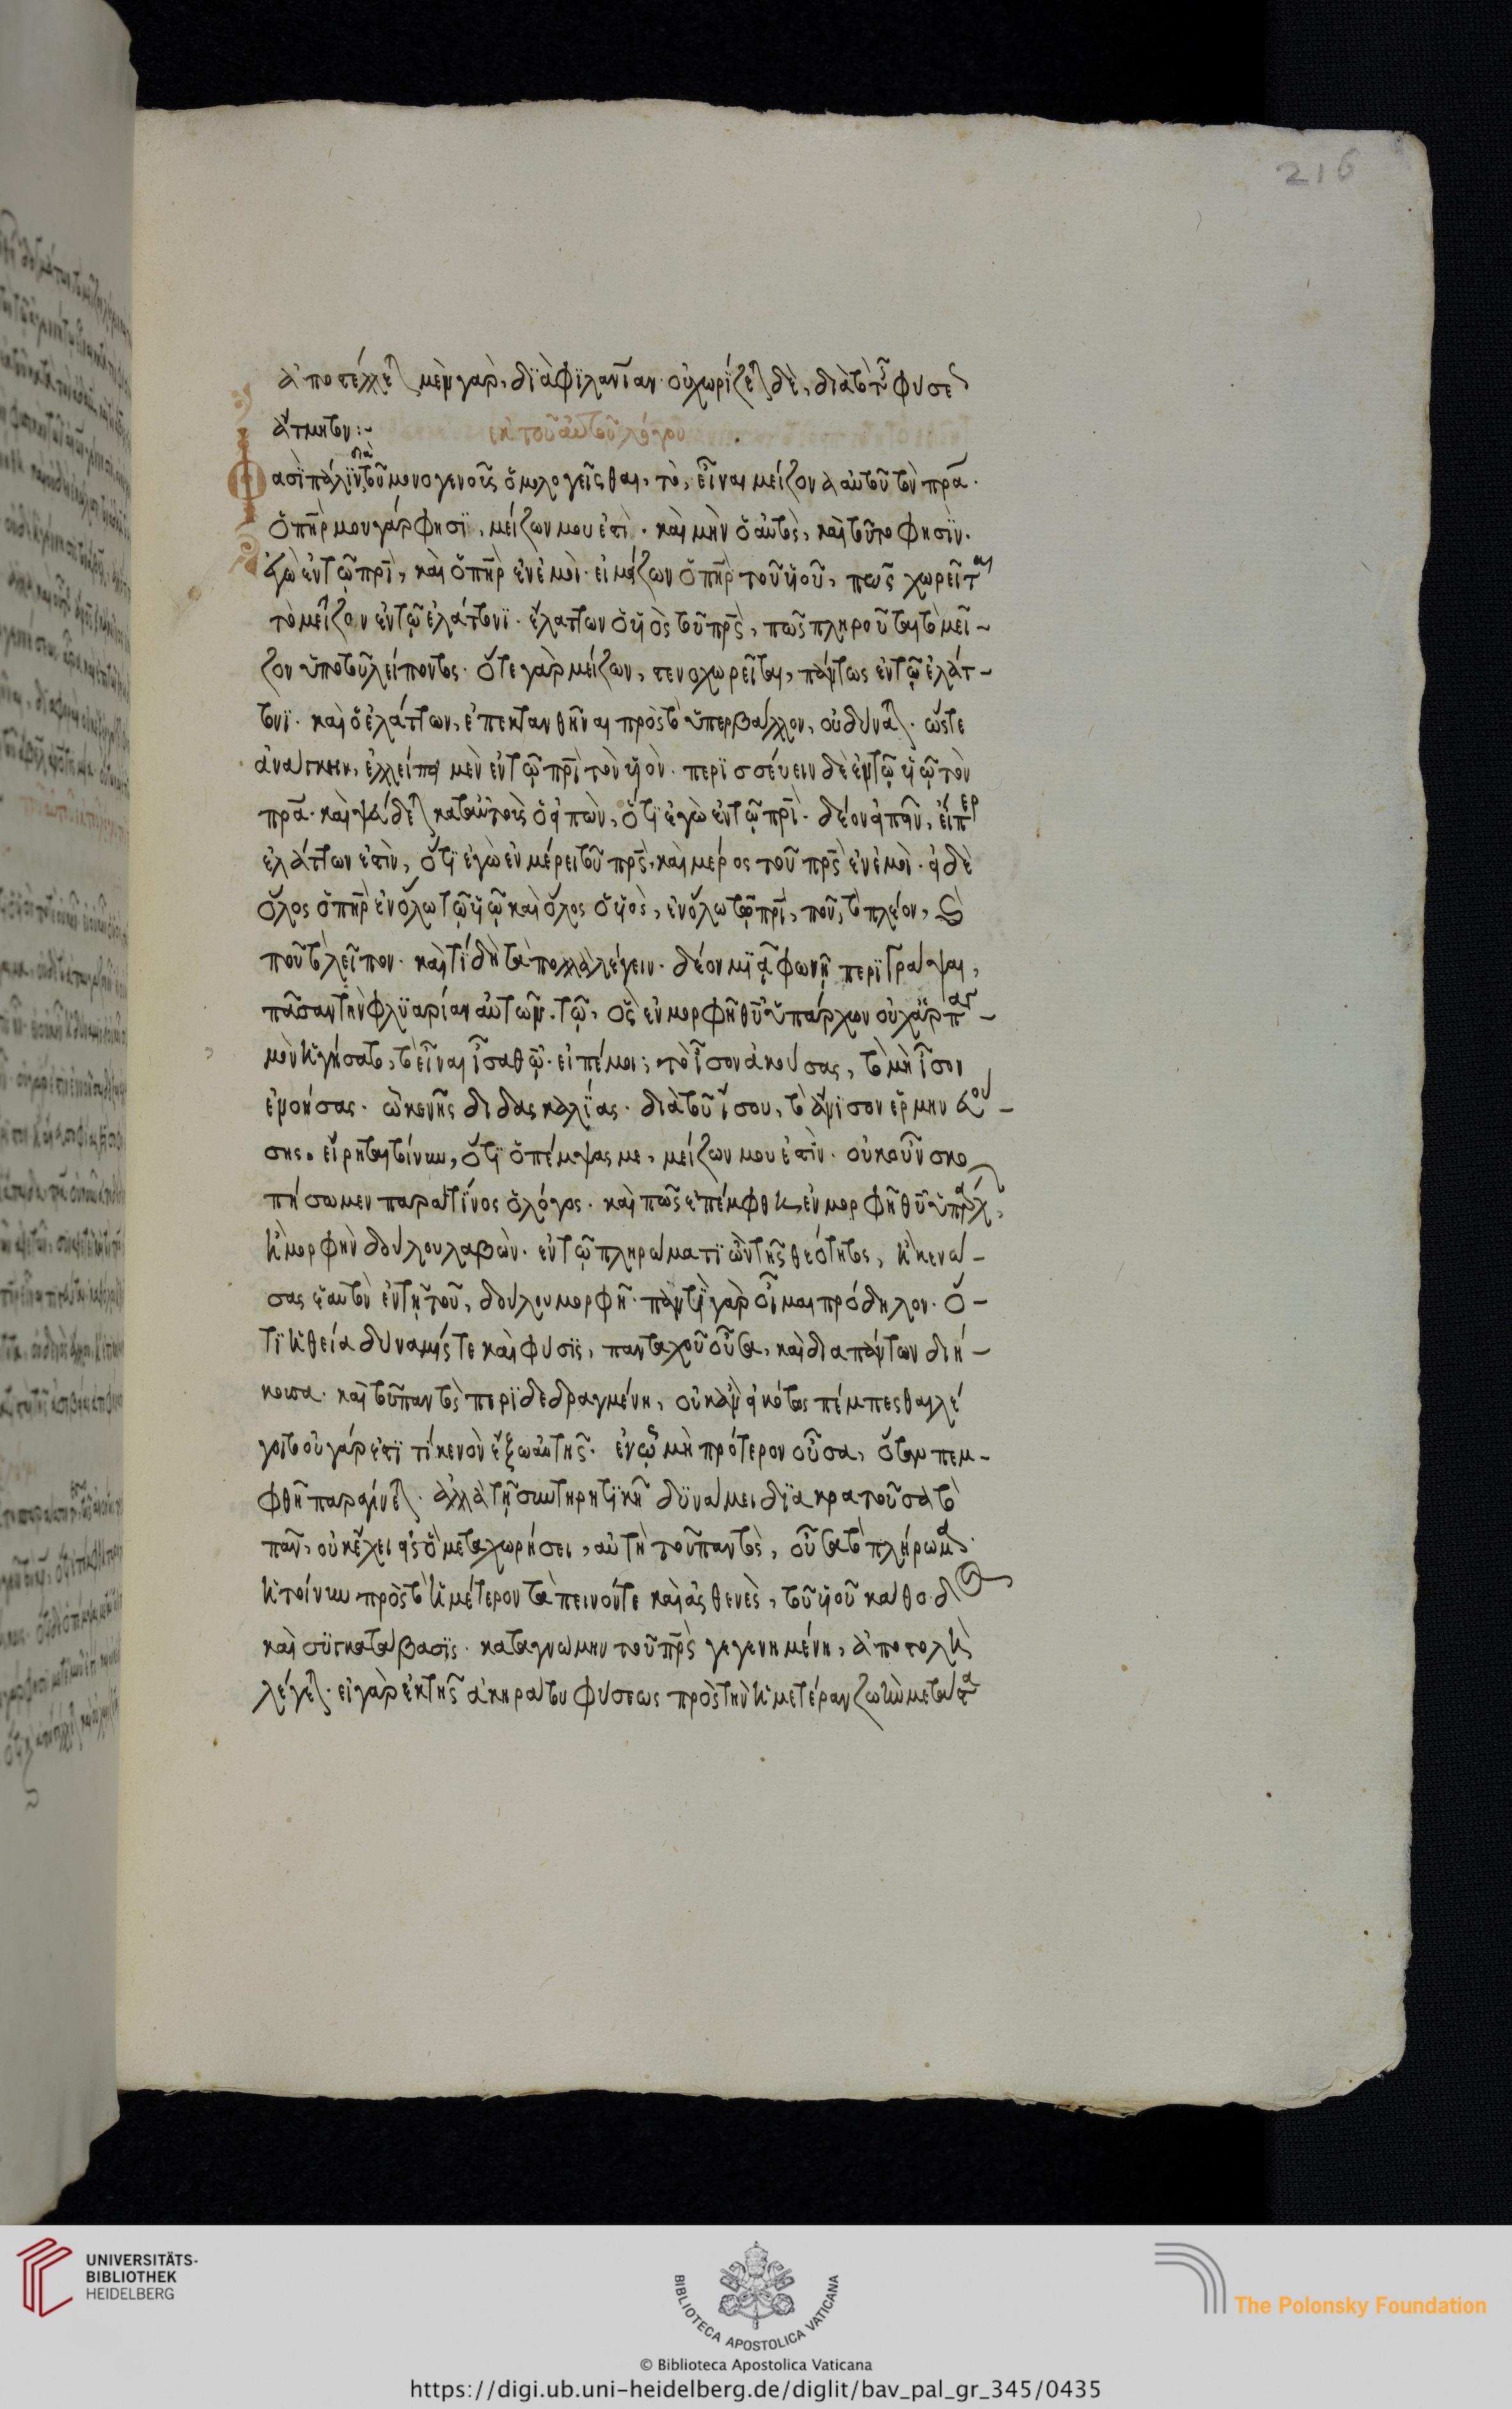 216
ἀποστέλλει μὲν γὰρ, διὰ φιλανίαν. οὐ χωρίζει δὲ, διὰ τὸ τῆ φύσει
ἄτμητον:~
ἐκ τοῦ αὐτοῦ λόγου
Φασὶ πάλιν παρὰ τοῦ μονογενοῦς ὁμολογεῖσθαι, τὸ, εἶναι μείζονα αὐτοῦ τὸν πρα.
ὁ πηρ μου γάρ φησι, μείζων μου ἐστὶ. καὶ μὴν ὁ αὐτὸς, καὶ τοῦτο φησὶν.
ἐγὼ ἐν τῶ πρι, καὶ ὁ πηρ ἐν ἐμοὶ. εἰ μείζων ὁ πηρ τοῦ υἱοῦ, πως χωρεῖται
τὸ μεῖζον ἐν τῶ ἐλάττονι. ἐλάττων ὁ υἱὸς τοῦ πρς, πῶς πληροῦται τὸ μεῖ-
ζον ὑπὸ τοῦ λείποντος. ὅτε γὰρ μείζων, στενοχωρεῖται, πάντως ἐν τῶ ἐλάτ-
τονι. καὶ ὁ ἐλάττων, ἐπεκτανθῆναι πρὸς τὸ ὑπερβάλλον, οὐ δύναται. ὥστε
ἀνάγκην, ἐλλείπειν μὲν ἐν τῶ πρι τὸν υἱὸν. περισσεύειν δὲ ἐν τῶ υἱῶ τὸν
πρα. καὶ ψεύδεται κατ αὐτοὺς ὁ εἰπὼν, ὅτι ἐγὼ ἐν τῶ πρι. δέον εἰπεῖν, εἴπερ
ἐλάττων ἐστὶν, ὅτι ἐγὼ ἐν μέρει τοῦ πρς, καὶ μέρος τοῦ πρς ἐν ἐμοὶ. εἰ δὲ
ὅλος ὁ πηρ ἐν ὅλω τῶ υἱῶ καὶ ὅλος ὁ υἱὸς, ἐν ὅλω τῶ πρι, ποῦ, τὸ πλέον, καὶ
ποῦ τὸ λεῖπον. καὶ τί δῆτα πολλὰ λέγειν. δέον μιᾶ φωνῆ περιγράψαι,
πᾶσαν τὴν φλυαρίαν αὐτῶν. τῶ, ὃς ἐν μορφῆ θυ ὑπάρχων οὐχ ἁρπαγ-
μὸν ἡγήσατο, τὸ εἶναι ἶσα θῶ. εἰπέ μοι; τὸ ἶσον ἀκούσας, τὸ μὴ ἶσον
ἐνοήσας. ὢ κενῆς διδασκαλίας. διὰ τοῦ ἴσου, τὸ ἄνισον ἑρμηνευού-
σης. εἴρηται τοίνυν, ὅτι ὁ πέμψας με, μείζων μου ἐστὶν. οὐκοῦν σκο
πήσωμεν παρὰ τίνος ὁ λόγος. καὶ πῶς ἐπέμφθη ἐν μορφῆ θυ ὑπάρχων,
ἢ μορφὴν δούλου λαβὼν. ἐν τῶ πληρώματι ὢν τῆς θεότητος, ἢ κενώ-
σας ἑαυτὸν ἐν τῆ τοῦ, δούλου μορφῆ. παντὶ γὰρ οἶμαι πρόδηλον. ὅ-
τι ἡ θεία δύναμίς τε καὶ φύσις, πανταχοῦ οὖσα, καὶ δια πάντων διή-
κουσα. καὶ τοῦ παντὸς περιδεδραγμένη, οὐκ ἂν εἰκότως πέμπεσθαι λέ
γοιτο οὐ γάρ ἐστι τί κενὸν ἔξω αὐτῆς. ἐν ὧ μὴ πρότερον οὖσα, ὅταν πεμ-
φθῆ παραγίνεται. ἀλλὰ τῆ συντηρητικῆ δυνάμει διακρατοῦσα τὸ
πᾶν, οὐκ ἔχει εἰς ὃ μεταχωρήσει, αὐτὴ τοῦ παντὸς, οὖσα τὸ πλήρωμα.
ἡ τοίνυν πρὸς τὸ ἡμέτερον ταπεινόν τε καὶ ἀσθενὲς, τοῦ υἱοῦ κάθοδος
καὶ συγκατάβασις. κατα γνώμην τοῦ πρς γεγενημένη, ἀποστολὴ
λέγεται. εἰ γὰρ ἐκ τῆς ἀκηράτου φύσεως πρὸς τὴν ἡμετέραν ζωὴν μετάστα
UNIVERSITÄTS-
BIBLIOTHEK
HEIDELBERG
BIBLIOTECA APOSTOLICA VATICANA
The Polonsky Foundation
© Biblioteca Apostolica Vaticana
https://digi.ub.uni-heidelberg.de/diglit/bav_pal_gr_345/0435